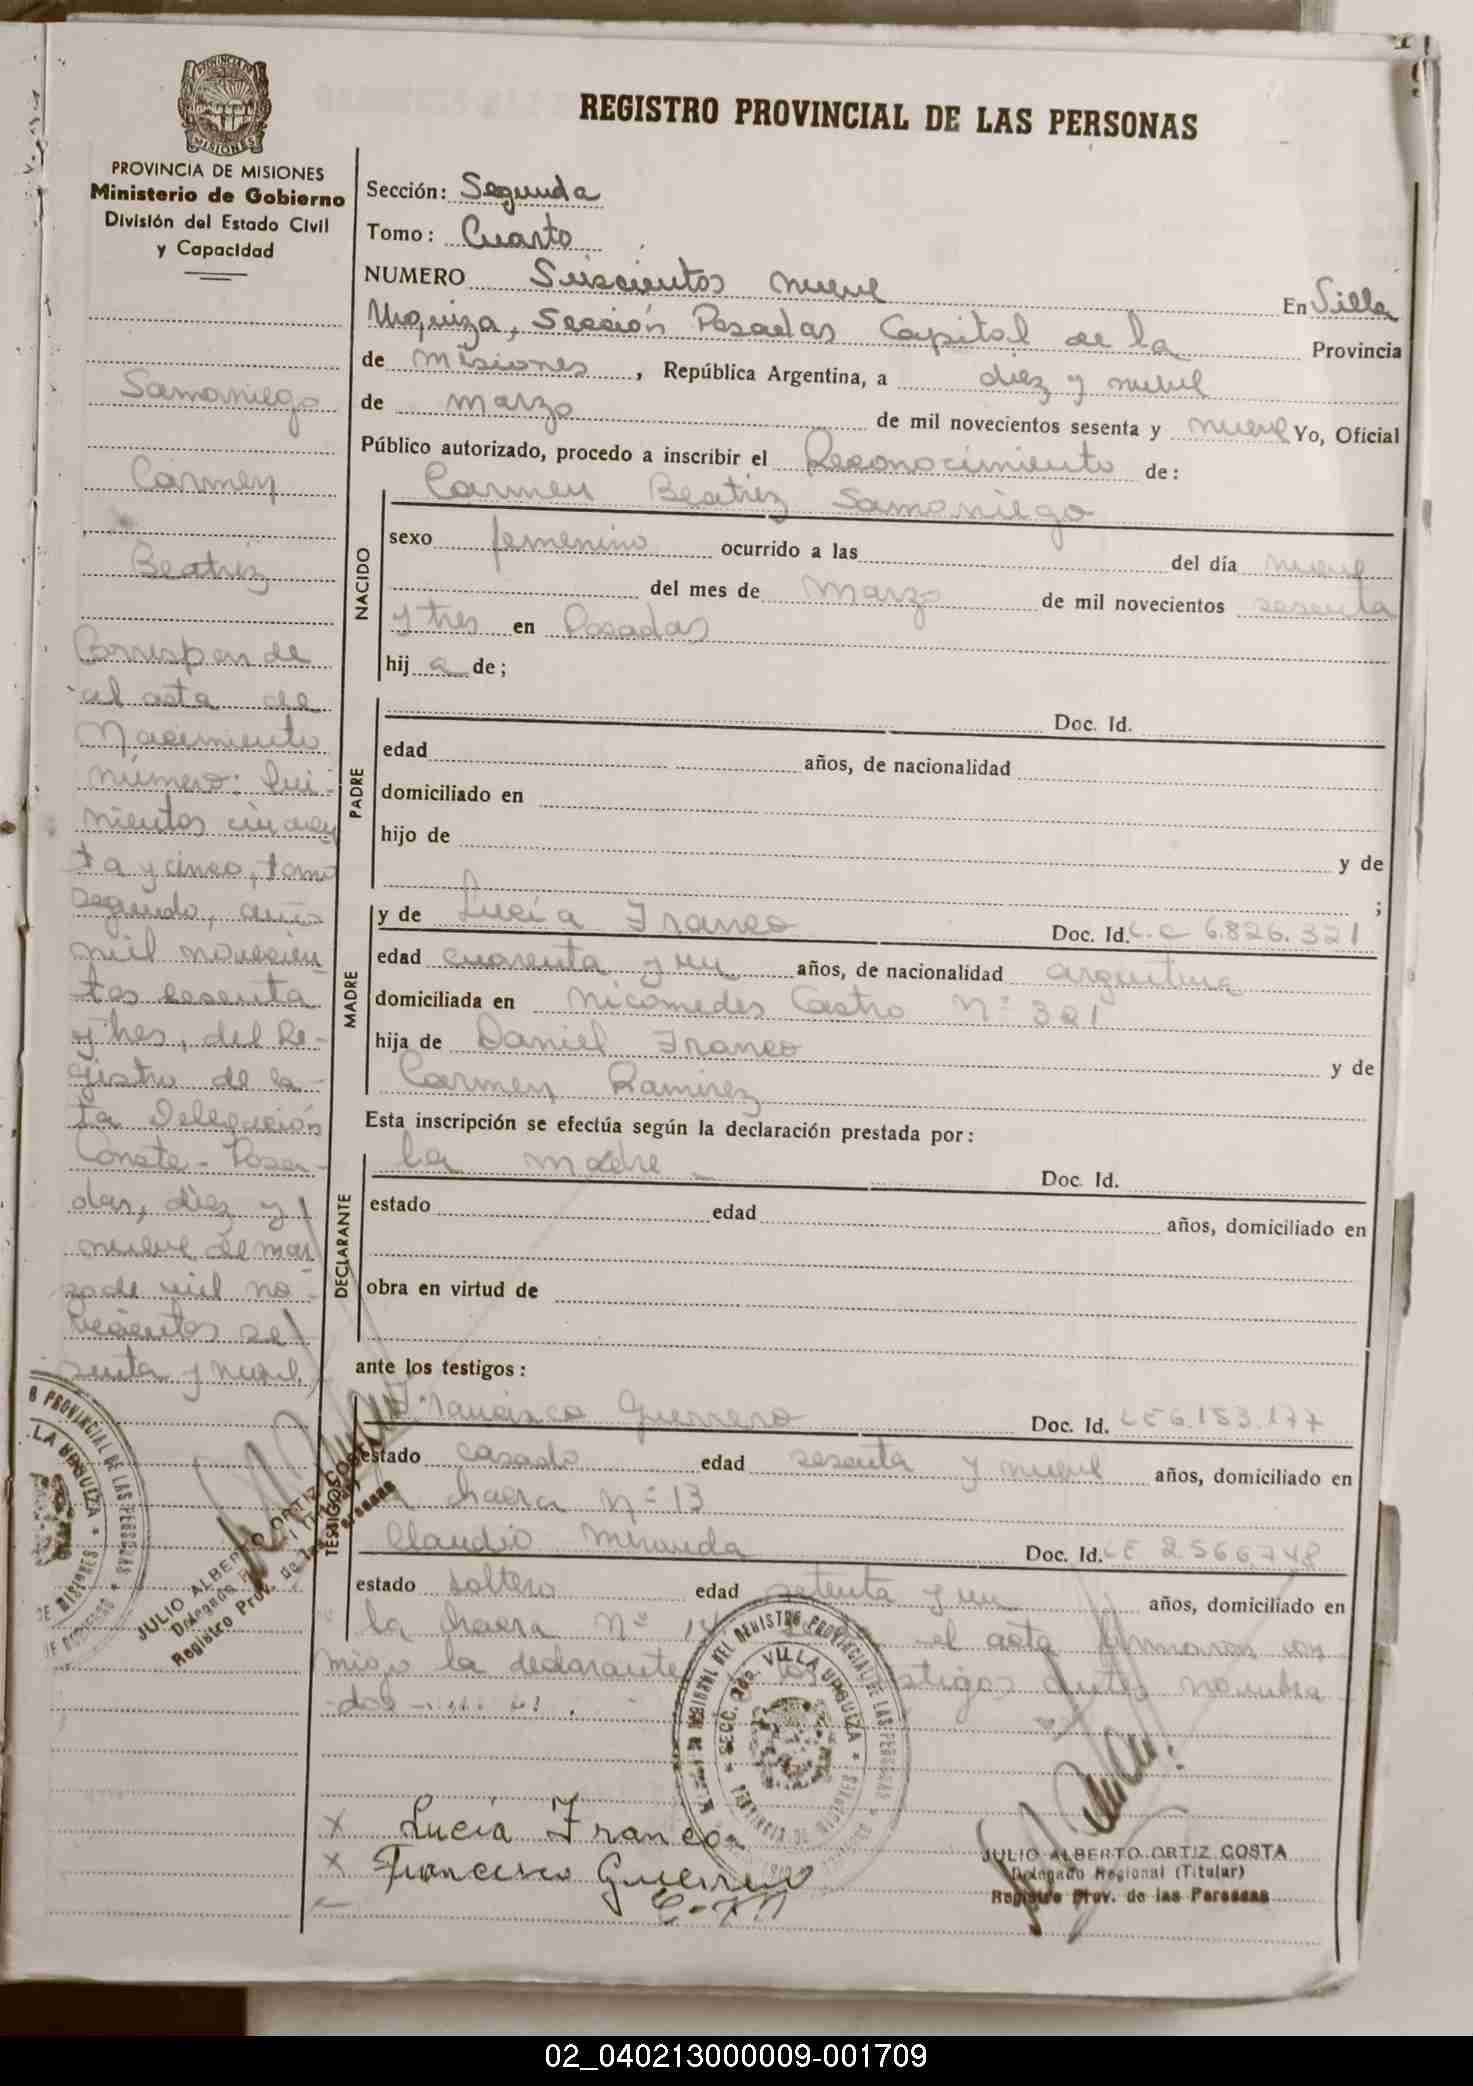 PROVINCIA DE MISIONES
Ministerio de Gobierno
División del Estado Civil
y Capacidad
Samaniego
Carmen
Beatriz
Corresponde
al acta de
Nacimiento
número: Qui-
nientos cincuen
ta y cinco, tomo
segundo, año
mil novecien
tos sesenta
y tres, del Re-
gistro de es-
ta Delegación
Conste - Posa-
das, diez y
nueve de mar
zo de mil no-
vecientos se
senta y nueve.
REGISTRO PROVINCIAL DE LAS PERSONAS
Sección: Segunda
Tomo: Cuarto
NUMERO Seiscientos nueve En Villa
Urquiza, Sección Posadas Capital de la Provincia
de Misiones, República Argentina, a diez y nueve
de marzo de mil novecientos sesenta y nueve Yo, Oficial
Público autorizado, procedo a inscribir el Reconocimiento de:
NACIDO
Carmen Beatriz Samaniego
sexo femenino ocurrido a las del día nueve
del mes de Marzo de mil novecientos sesenta
y tres en Posadas
hij a de;
PADRE
Doc. Id.
edad años, de nacionalidad
domiciliado en
hijo de y de
;
MADRE
y de Lucía Franco Doc. Id. L.C 6.826.321
edad cuarenta y un años, de nacionalidad argentina
domiciliada en Nicomedes Castro N° 321
hija de Daniel Franco y de
Carmen Ramirez
Esta inscripción se efectúa según la declaración prestada por:
DECLARANTE
la madre Doc. Id.
estado edad años, domiciliado en
obra en virtud de
ante los testigos:
TESTIGOS
Francisco Guerrero Doc. Id. LE 6.153.177
estado casado edad sesenta y nueve años, domiciliado en
chacra n° 13
Claudio Miranda Doc. Id. LE 2566748
estado soltero edad setenta y un años, domiciliado en
la chacra N° el acta firmaron con
migo la declarante y los testigos antes nombra
dos
X Lucía Franco
X Francisco Guerrero
JULIO ALBERTO ORTIZ COSTA
Delegado Regional (Titular)
Registro Prov. de las Personas
JULIO ALBERTO ORTIZ COSTA
Registro Prov. de las Personas
SECC. VILLA URQUIZA
PROVINCIA DE MISIONES
REGISTRO PROVINCIAL DE LAS PERSONAS
02_040213000009-001709